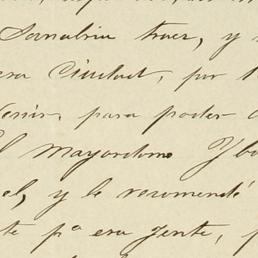 Sanabria traer, y
esa Ciudad, por
venir, para poder
El mayordomo Yb
el, y le recomendé
te pª esa gente, p